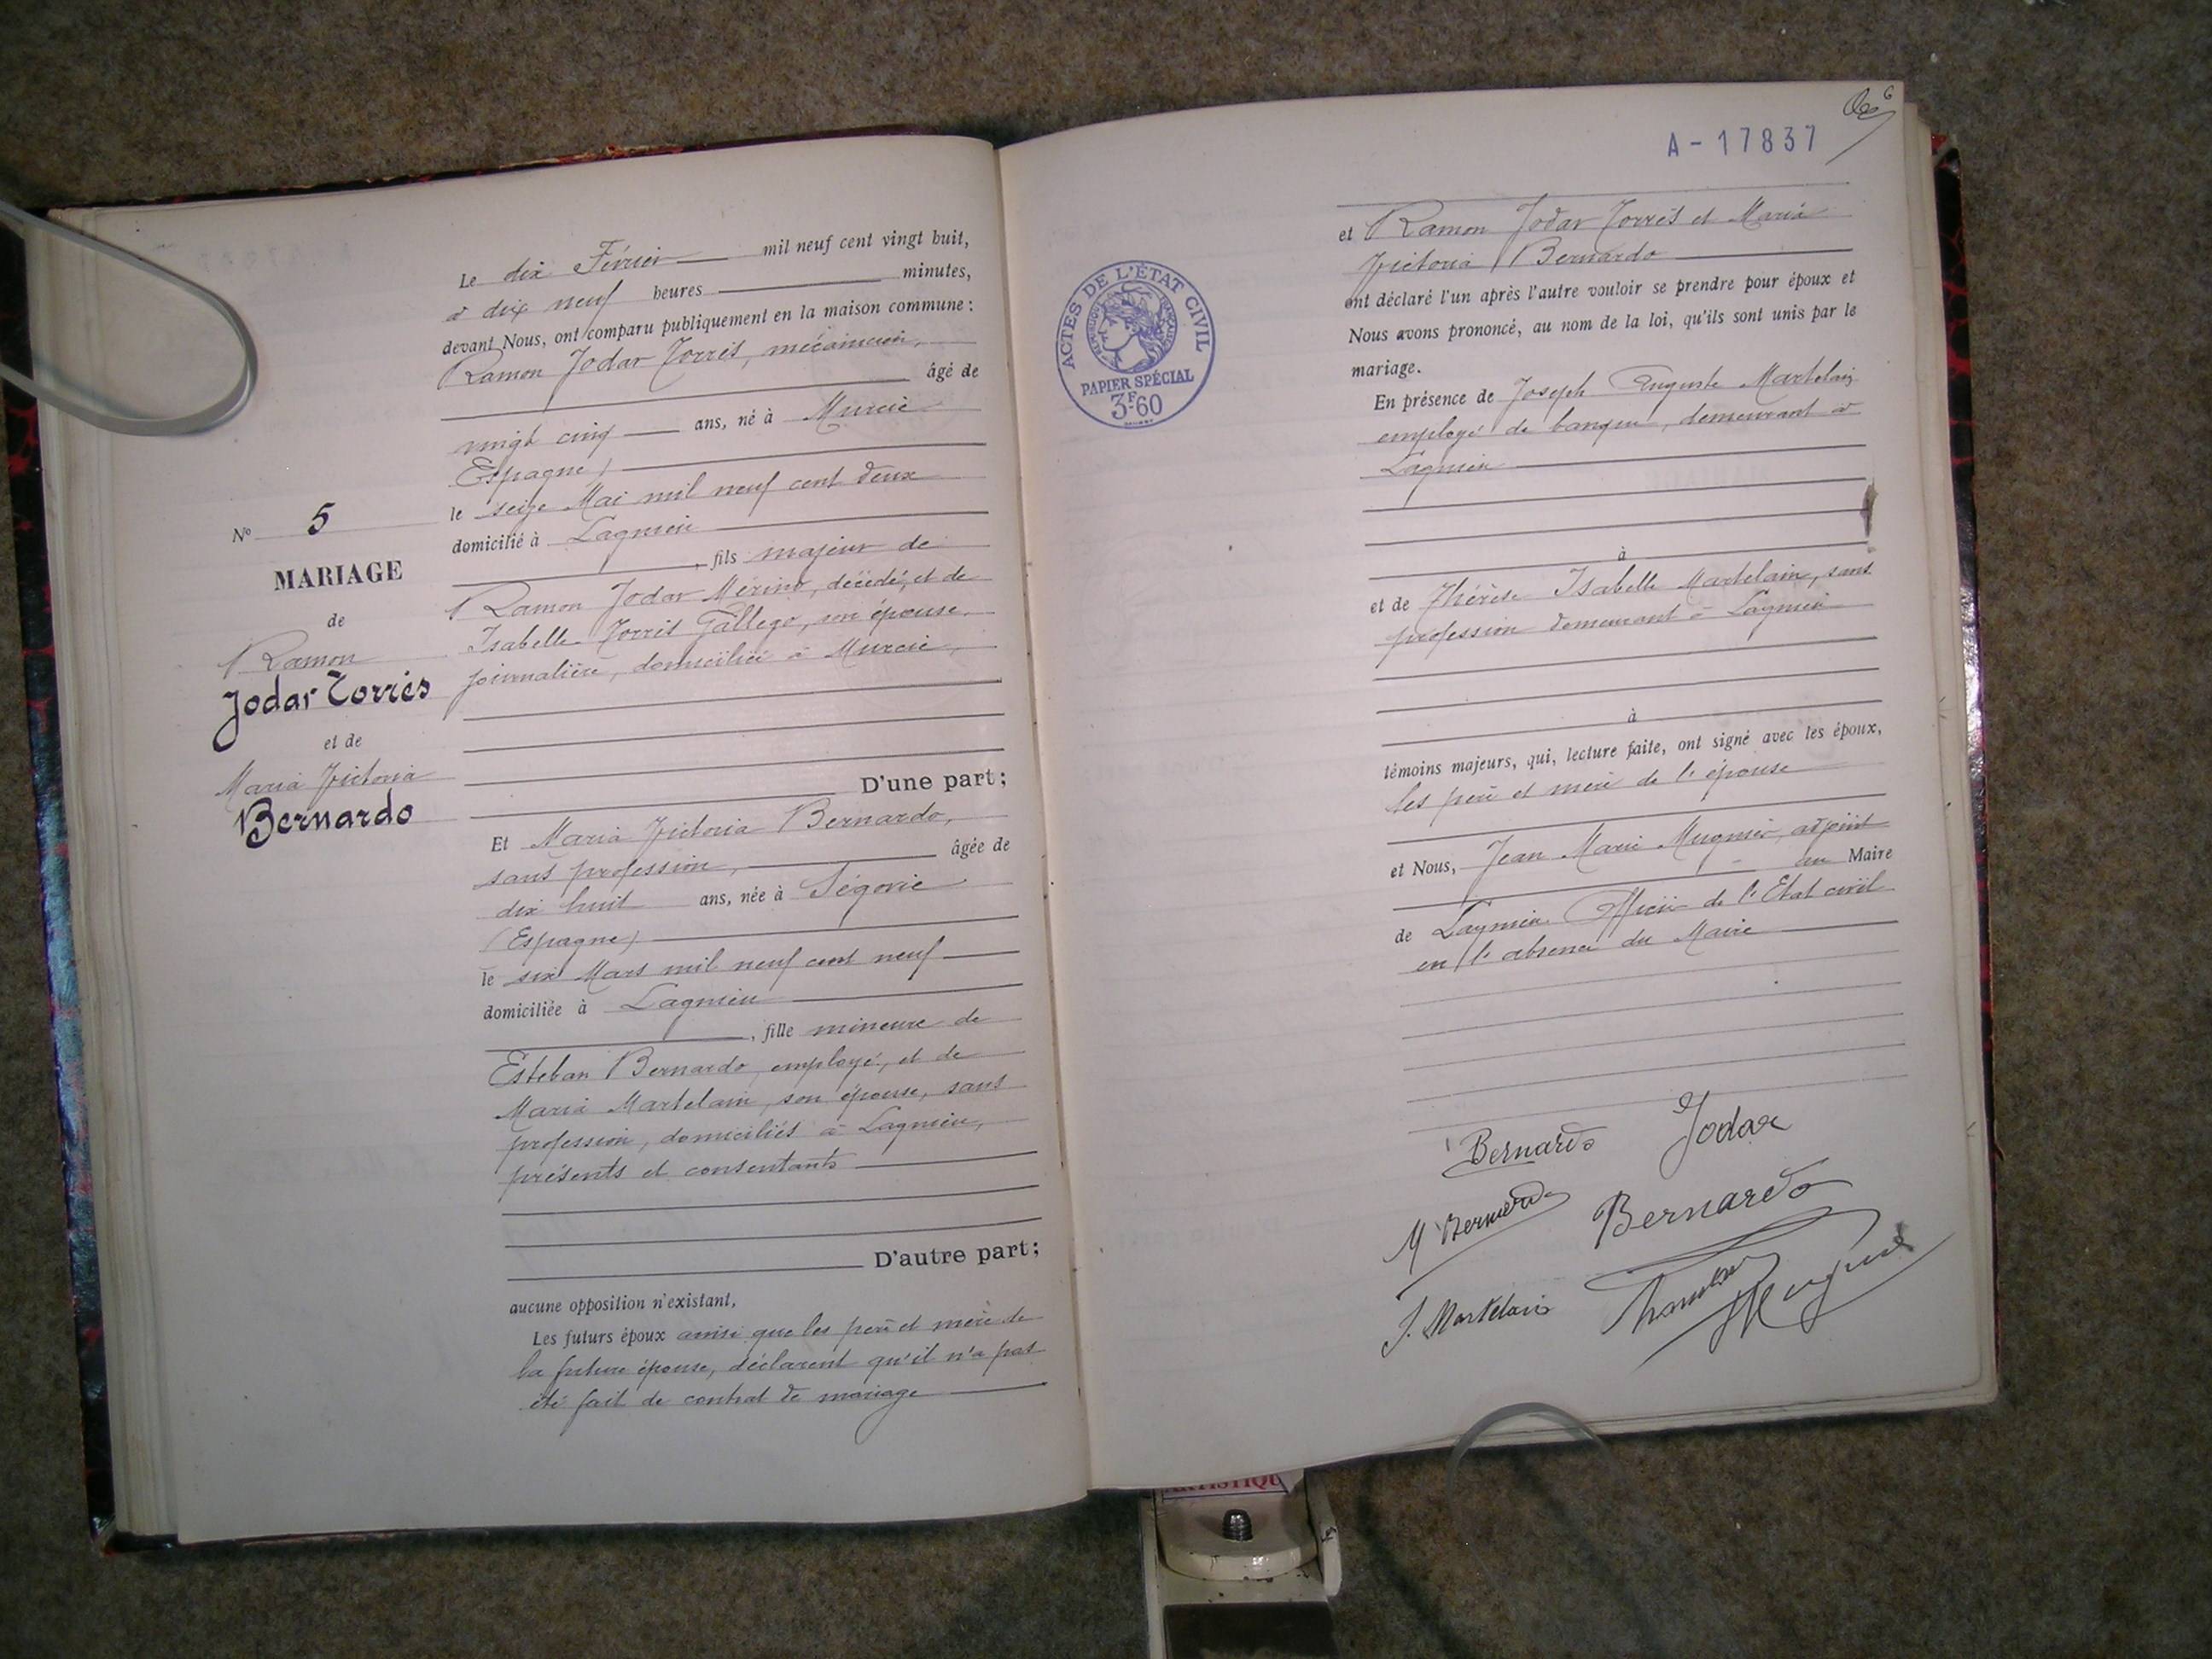 Le dix Février mil neuf cent vingt huit,
à dix neuf heures minutes,
devant Nous, ont comparu publiquement en la maison commune :
Ramon Jodar Torrès, mécanicien,
âgé de
vingt cinq ans, né à Murcie
Espagne)
le seize Mai mil neuf cent deux
domicilié à Lagnieu
, fils majeur de
Ramon Jodar Mérino, décédé, et de
Isabelle Torrès Gallego, son épouse,
journalière, domiciliée à Murcie,
D'une part;
Nº 5
MARIAGE
de
Ramon
Jodar Torrès
et de
Maria Victoria
Bernardo
Et Maria Victoria Bernardo,
sans profession, âgée de
dix huit ans, née à Ségovie
(Espagne)
le six Mars mil neuf cent neuf
domiciliée à Lagnieu
, fille mineure de
Esteban Bernardo, employé, et de
Maria Martelain, son épouse, sans
profession, domiciliés à Lagnieu,
présents et consentants
D'autre part;
aucune opposition n'existant,
Les futurs époux ainsi que les père et mère de
la future épouse, déclarent qu'il n'a pas
été fait de contrat de mariage
A-17837
6
ACTES DE L'ÉTAT CIVIL
RÉPUBLIQUE FRANÇAISE
PAPIER SPÉCIAL
3F60
et Ramon Jodar Torrès et Maria
Victoria Bernardo
ont déclaré l'un après l'autre vouloir se prendre pour époux et
Nous avons prononcé, au nom de la loi, qu'ils sont unis par le
mariage.
En présence de Joseph Auguste Martelain
employé de banque, demeurant à
Lagnieu
à
et de Thérèse Isabelle Martelain, sans
profession demeurant à Lagnieu
à
témoins majeurs, qui, lecture faite, ont signé avec les époux,
les père et mère de l'épouse
et Nous, Jean Marie Mugnier, adjoint
au Maire
de Lagnieu Officier de l'Etat civil
en l'absence du Maire
Bernardo Jodar
M Bernardo Bernardo
J. Martelain
Mugnier
ARTISTIQU